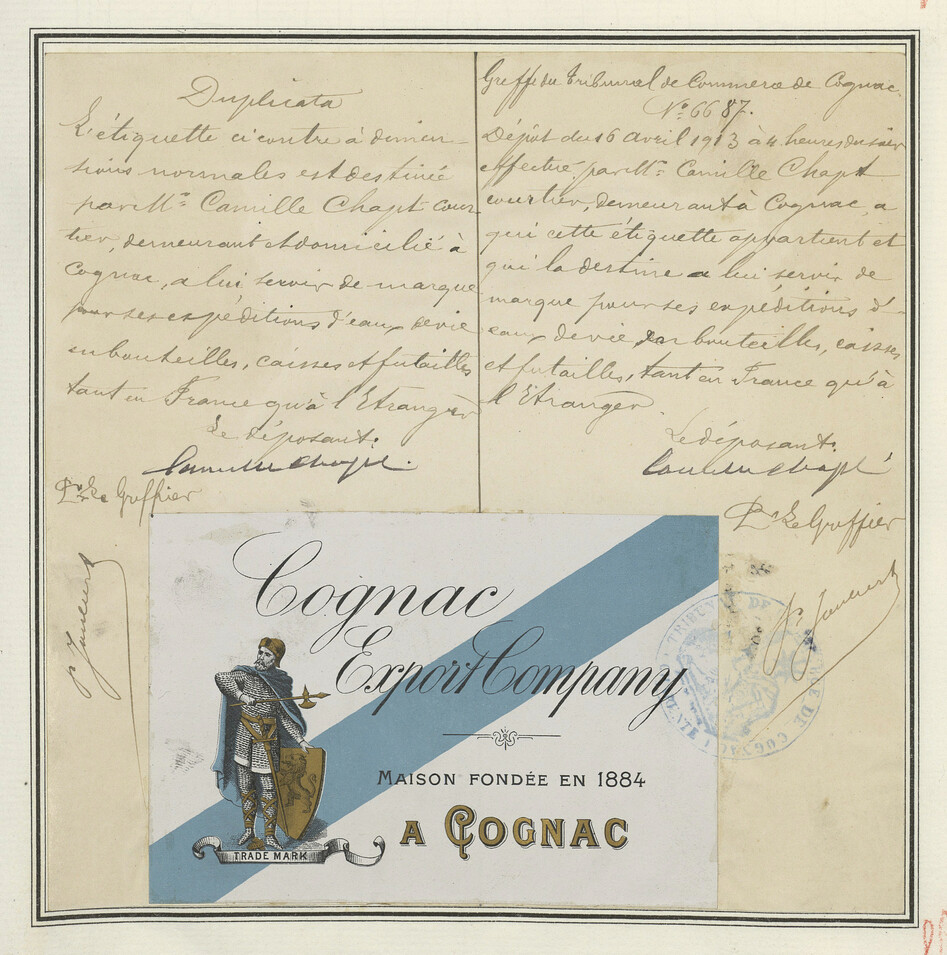 Duplicata
L'étiquette ci contre à dimen-
sions normales est destinée
par Mr. Camille Chapt cour
tier, demeurant et domicilié à
Cognac, a lui servir de marque
pour ses expéditions d'eaux de vie
en bouteilles, caisses et futailles
tant en France qu'à l'Etranger
Le déposant.
Camille Chapt.
Pr. Le Greffier
Greffe du Tribunal de Commerce de Cognac.
No. 6687.
Dépôt du 16 Avril 1913 à 4 heures du soir
effectué, par Mr. Camille Chapt
courtier, demeurant à Cognac, a
qui cette étiquette appartient et
qui la destine a lui servir de
marque pour ses expéditions d'-
eaux de vie en bouteilles, caisses
et futailles, tant en France qu'à
l'Etranger.
Le déposant.
Camille Chapt
Pr. Le Greffier
Cognac
Export Company
MAISON FONDÉE EN 1884
A COGNAC
TRADE MARK
TRIBUNAL DE
DE COGNAC